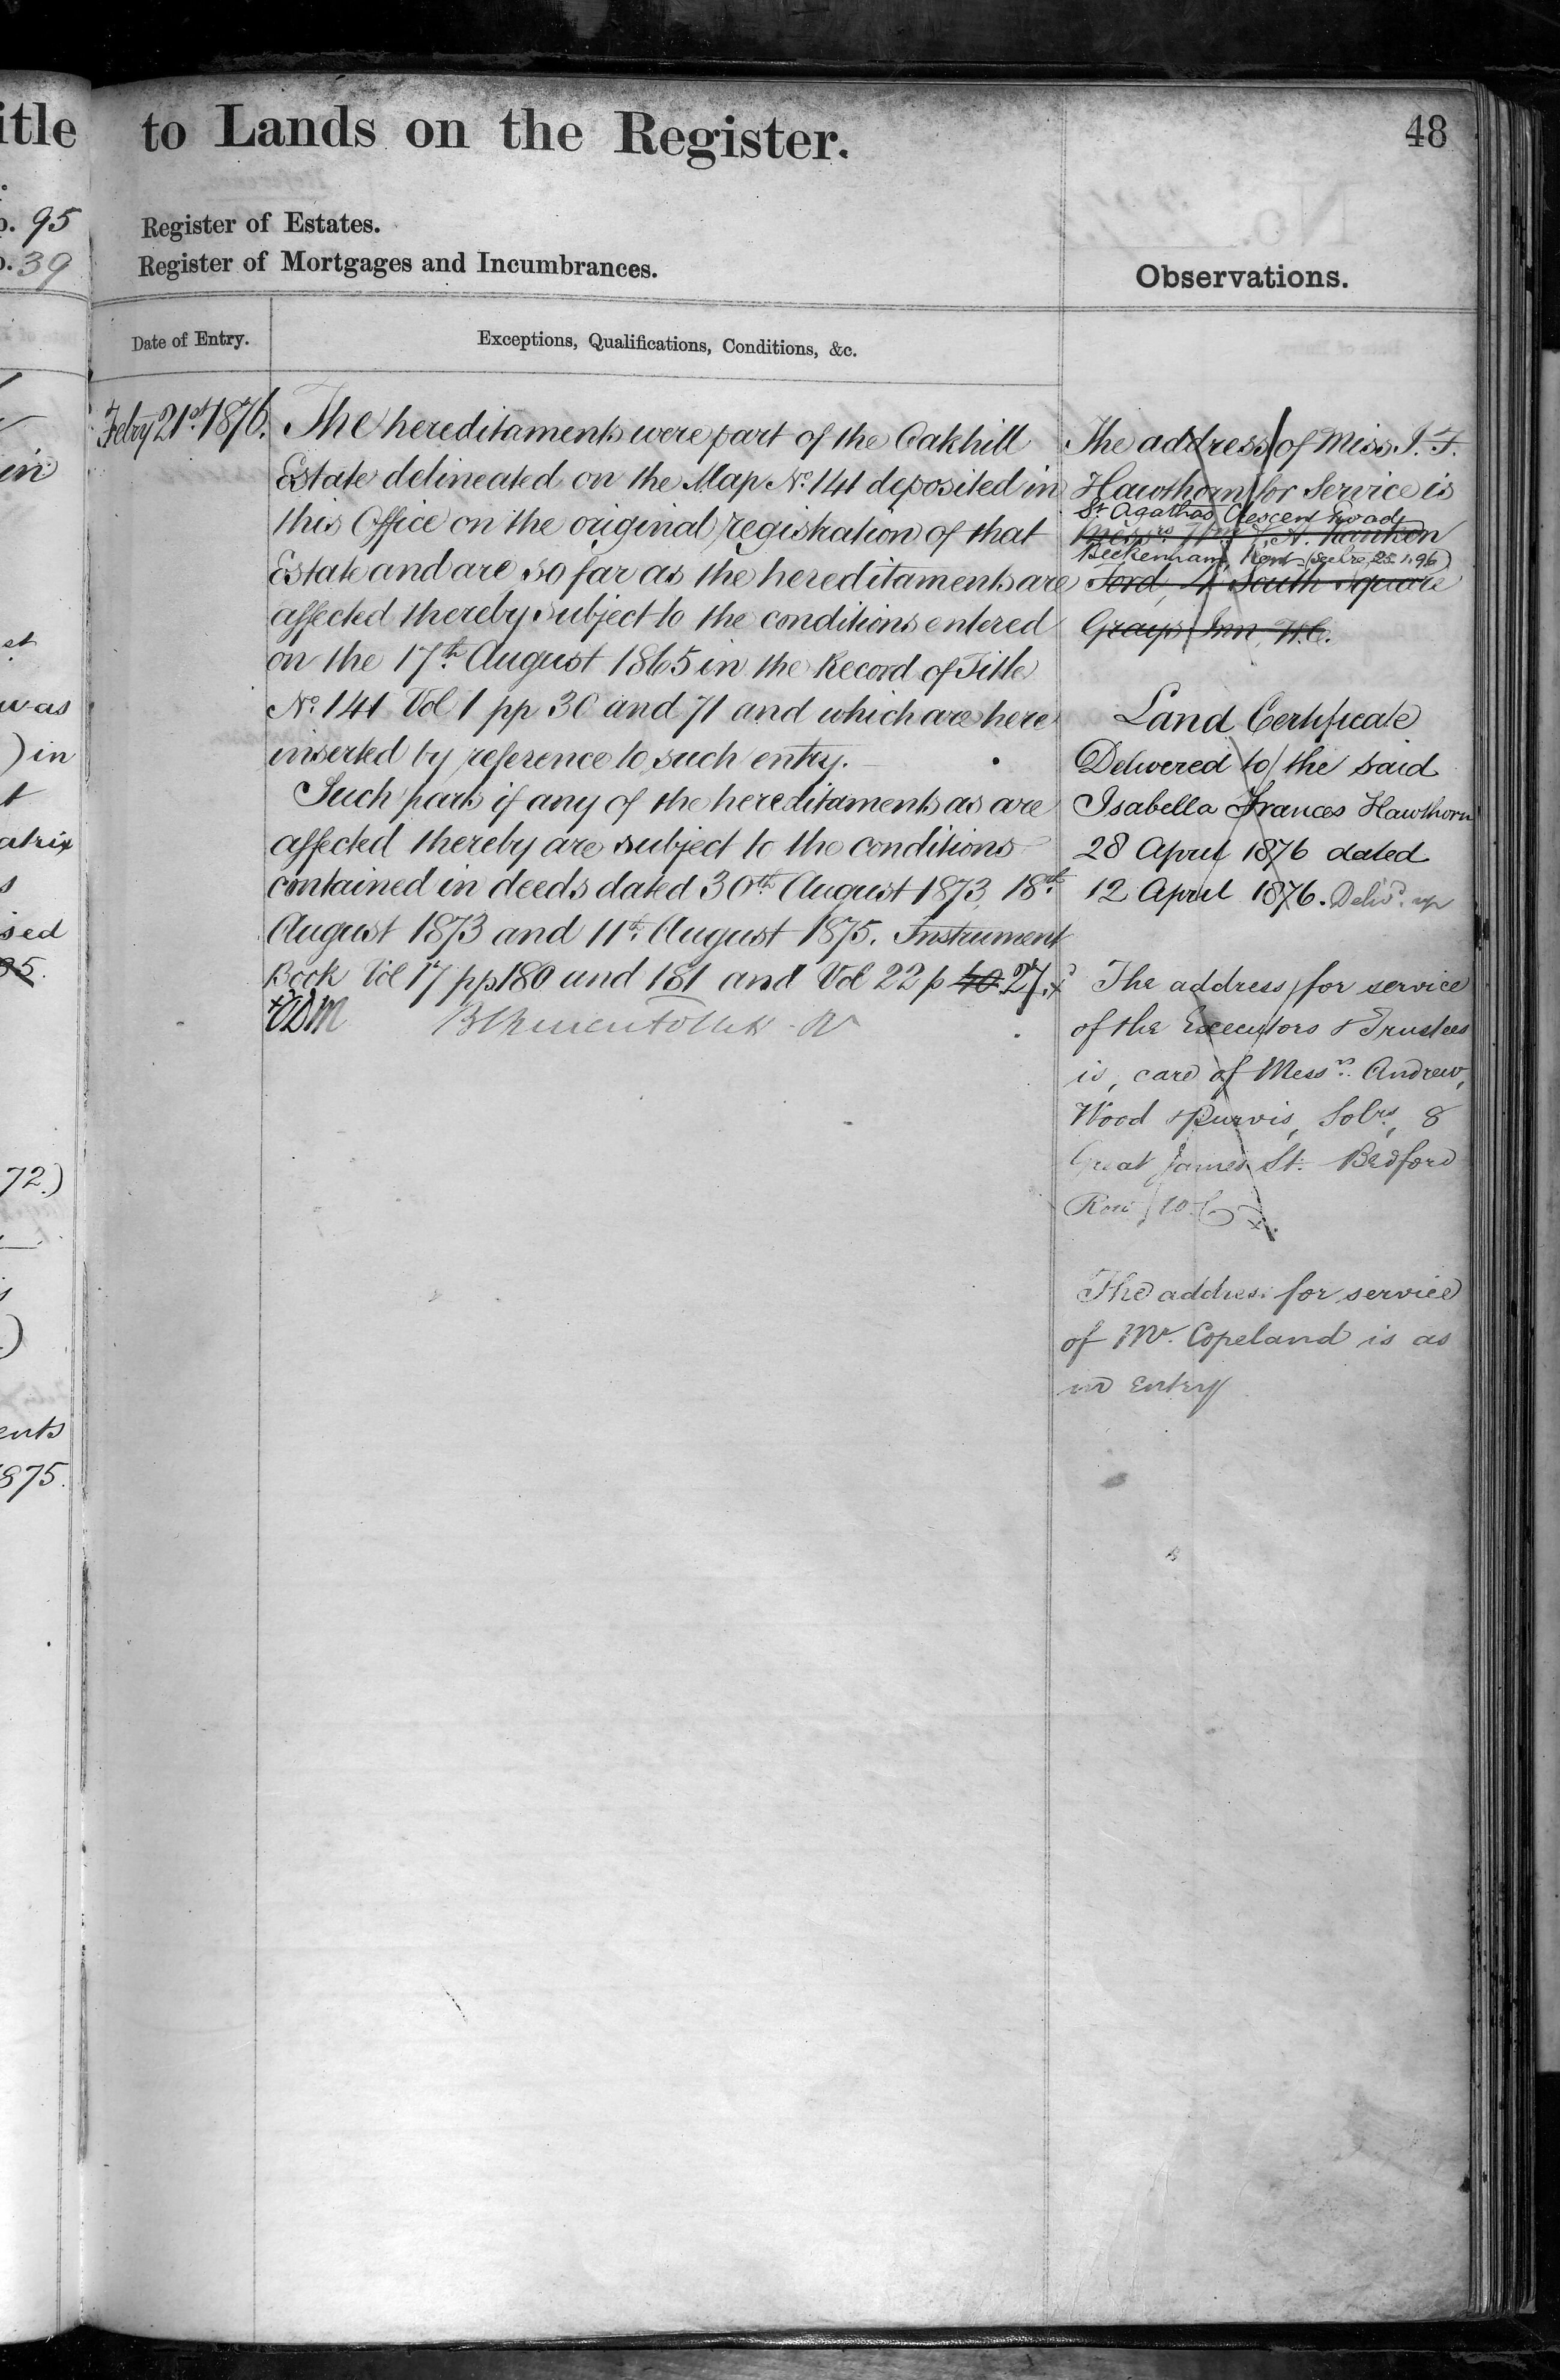 itle
95
39
in
et
was
) in
t
atrix
s
sed
95.
72.)
ents
1875.
to Lands on the Register.
48
Register of Estates.
Register of Mortgages and Incumbrances.
Observations.
Date of Entry.
Exceptions, Qualifications, Conditions, &c.
Febry 21st 1876.
The hereditaments were part of the Oakhill
Estate delineated on the Map No. 141 deposited in
this Office on the original registration of that
Estate and are so far as the hereditaments are
affected thereby subject to the conditions entered
on the 17th August 1865 in the Record of Title
No. 141 Vol 1 pp 30 and 71 and which are here
inserted by reference to such entry.
Such parts if any of the hereditaments as are
affected thereby are subject to the conditions
contained in deeds dated 30th August 1873, 18th
August 1873 and 11th August 1875. Instrument
Book Vol 17 pp 180 and 181 and Vol 22 p 40 27. x
The address of Miss I. F.
Hawthorn for Service is
St Agathas, Crescent Road
Messrs
Beckenham, Kent (25.1.96)
Ford, 4 South Square
Grays Inn W.C.
Land Certificate
Delivered to the said
Isabella Frances Hawthorn
28 April 1876 dated
12 April 1876. Delivd. up
The address for service
of the Executors & Trustees
is, care of Messrs. Andrew,
Wood & Purvis, Solrs, 8
Great James St. Bedford
Row W.C.
The address for service
of Mr. Copeland is as
in Entry